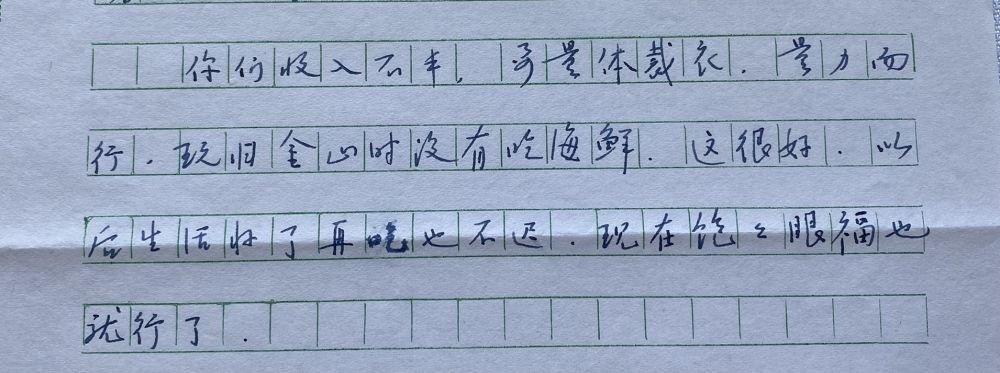 你们收入不丰,量体裁衣.量力而
行.玩旧金山时没有吃海鲜.这很好.以
后生活好了再吃也不迟.现在饱々眼福也
就行了.